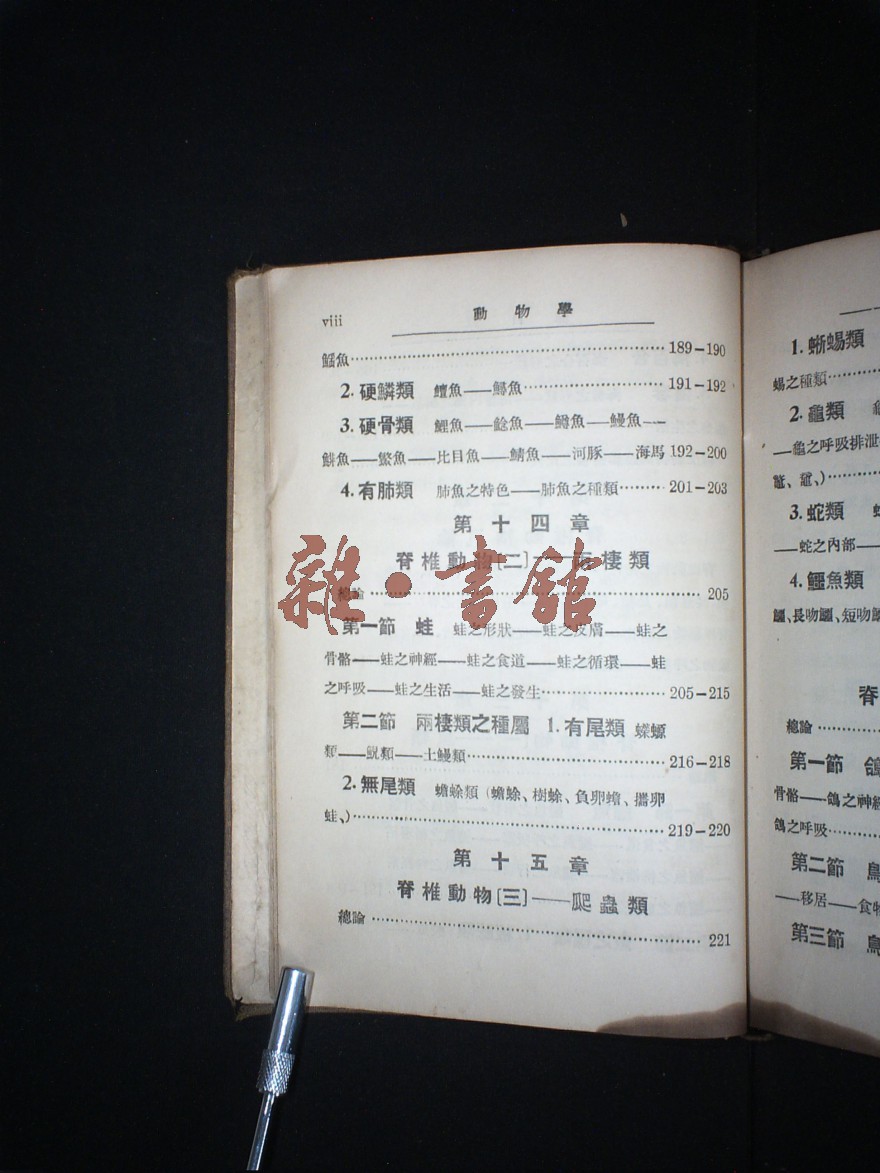 viii 動物學
鰩魚 189-190
2. 硬鱗類 鱣魚——鱘魚 191-192
3. 硬骨類 鯉魚——鯰魚——鱒魚——鰻魚——
鯡魚——鱉魚——比目魚——鯖魚——河豚——海馬 192-200
4. 有肺類 肺魚之特色——肺魚之種類 201-203
第十四章
脊椎動物〔二〕——兩棲類
總論 205
第一節 蛙 蛙之形狀——蛙之皮膚——蛙之
骨骼——蛙之神經——蛙之食道——蛙之循環——蛙
之呼吸——蛙之生活——蛙之發生 205-215
第二節 兩棲類之種屬 1. 有尾類 蠑螈
類——鯢類——土鰻類 216-218
2. 無尾類 蟾蜍類（蟾蜍、樹蛙、負卵蟾、攜卵
蛙、） 219-220
第十五章
脊椎動物〔三〕——爬蟲類
總論 221
雜·書館
1. 蜥蜴類
蜴之種類
2. 龜類
——龜之呼吸排泄
3. 蛇類
——蛇之內部——
4. 鱷魚類
鱷、長吻鱷、短吻
脊
總論
第一節 鴿
骨骼——鴿之神經
鴿之呼吸
第二節 鳥
——移居——食物
第三節 鳥